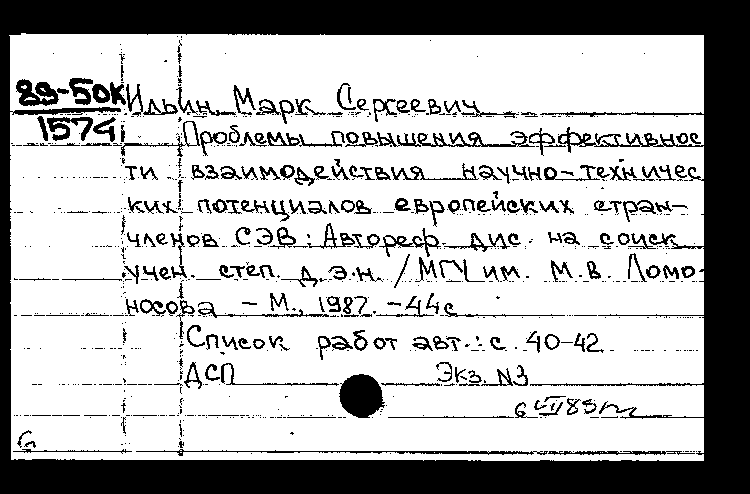 89-50К Ильин, Марк Сергеевич
1574 Проблемы повышения эффективнос
ти взаимодействия научно-техничес
ких потенциалов европейских стран-
членов СЭВ: Автореф. дис. на соиск
учен. степ. д.э.н. / МГУ им. М.В. Ломо-
носова – М., 1987. – 44 с
Список работ авт.: с. 40-42
ДСП Экз. N3
G